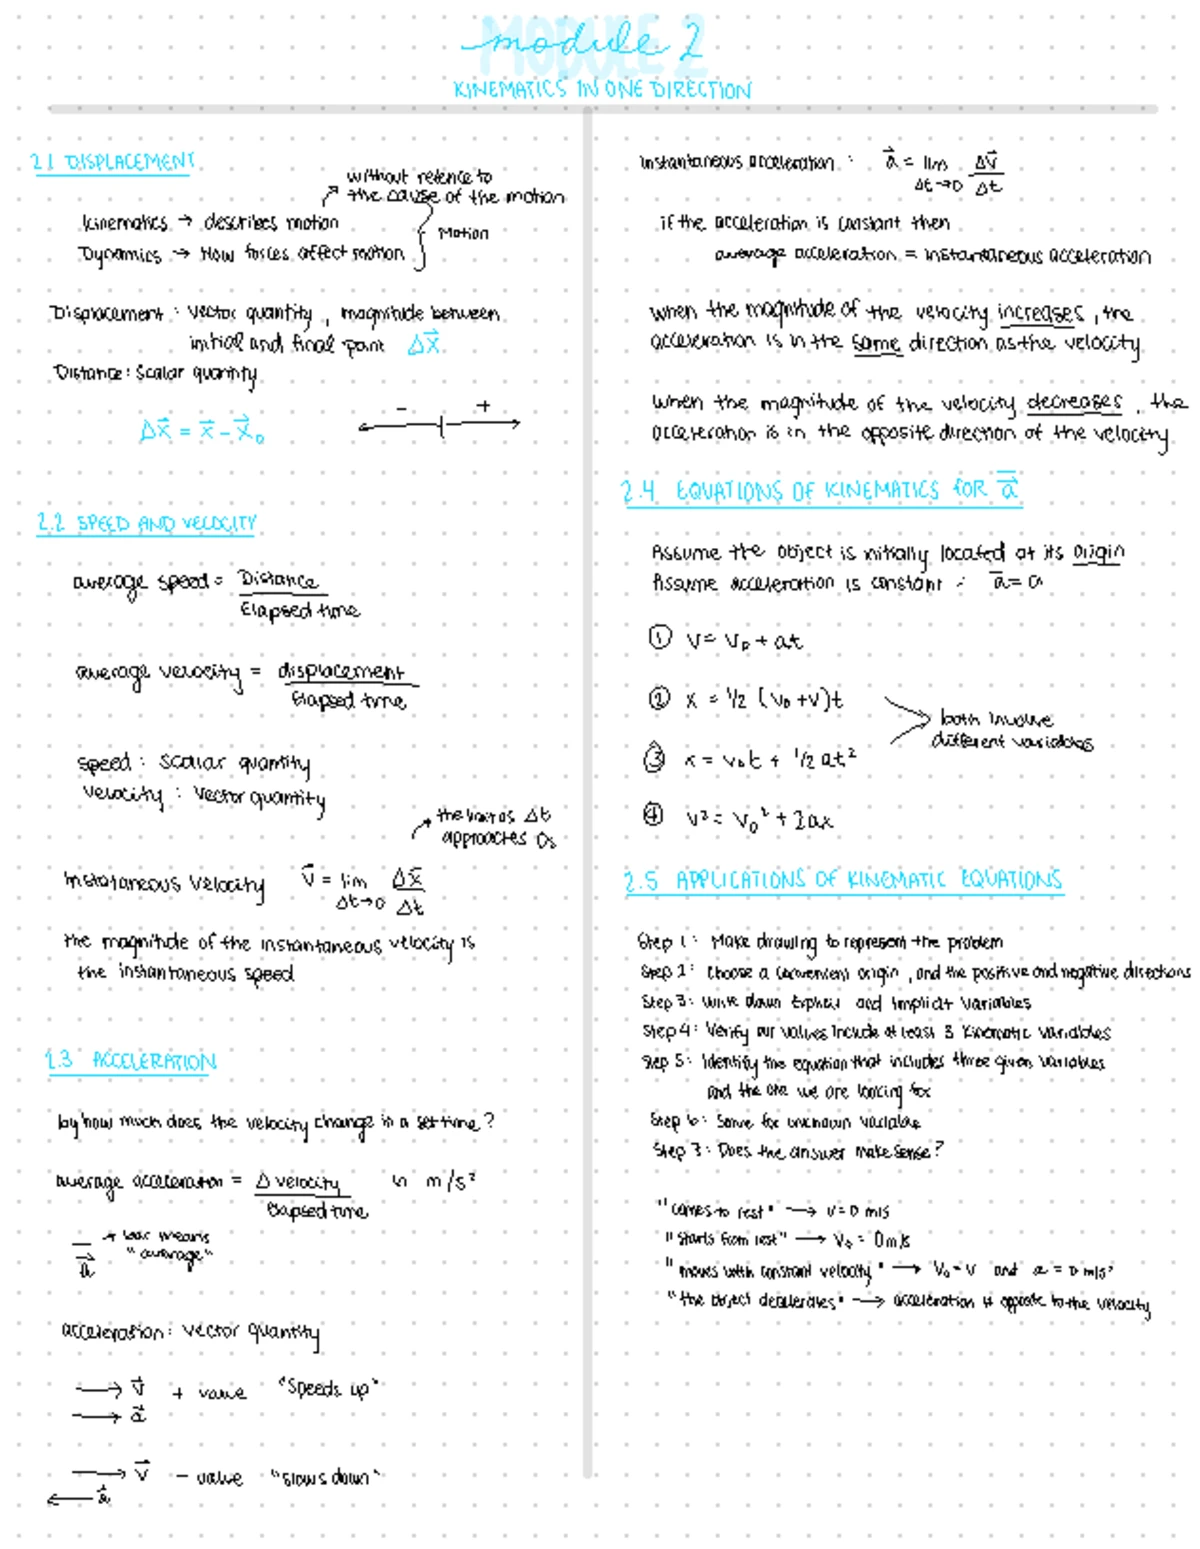 MODULE 2
module 2
KINEMATICS IN ONE DIRECTION
2.1 DISPLACEMENT
without refence to
the cause of the motion
Kinematics → describes motion
Dynamics → How forces affect motion
Motion
Displacement : vector quantity , magnitude between
initial and final point Δx⃗
Distance : Scalar quantity
Δx⃗ = x⃗ - x⃗₀
- +
2.2 SPEED AND VELOCITY
average speed = Distance
Elapsed time
average velocity = displacement
Elapsed time
speed : Scalar quantity
velocity : Vector quantity
the limit as Δt
approaches 0s
Instataneous Velocity v⃗ = lim Δx⃗
Δt→0 Δt
the magnitude of the instantaneous velocity is
the instantaneous speed
2.3 ACCELERATION
by how much does the velocity change in a set time ?
average acceleration = Δ velocity in m/s²
Elapsed time
→ bar means
"average"
a⃗
acceleration : vector quantity
→ v⃗ + value "Speeds up"
→ a⃗
→ v⃗ - value "Slows down"
← a⃗
Instantaneous acceleration : a⃗ = lim Δv⃗
Δt→0 Δt
if the acceleration is constant then
average acceleration = instantaneous acceleration
When the magnitude of the velocity increases , the
acceleration is in the same direction as the velocity
When the magnitude of the velocity decreases , the
acceleration is in the opposite direction of the velocity
2.4 EQUATIONS OF KINEMATICS FOR a⃗
Assume the object is initially located at its origin
Assume acceleration is constant ∴ a̅ = a
① v = v₀ + at
② x = 1/2 (v₀ + v)t
both involve
different variables
③ x = v₀t + 1/2 at²
④ v² = v₀² + 2ax
2.5 APPLICATIONS OF KINEMATIC EQUATIONS
Step 1 : Make drawing to represent the problem
Step 2 : Choose a convenient origin , and the positive and negative directions
Step 3 : Write down Explicit and Implicit Variables
Step 4 : Verify our values include at least 3 Kinematic Variables
Step 5 : Identify the equation that includes three given variables
and the one we are looking for
Step 6 : Solve for unknown variable
Step 7 : Does the answer make sense ?
"comes to rest" → v = 0 m/s
"starts from rest" → v₀ = 0 m/s
"moves with constant velocity" → v₀ = v and a = 0 m/s²
"the object decelerates" → acceleration is opposite to the velocity